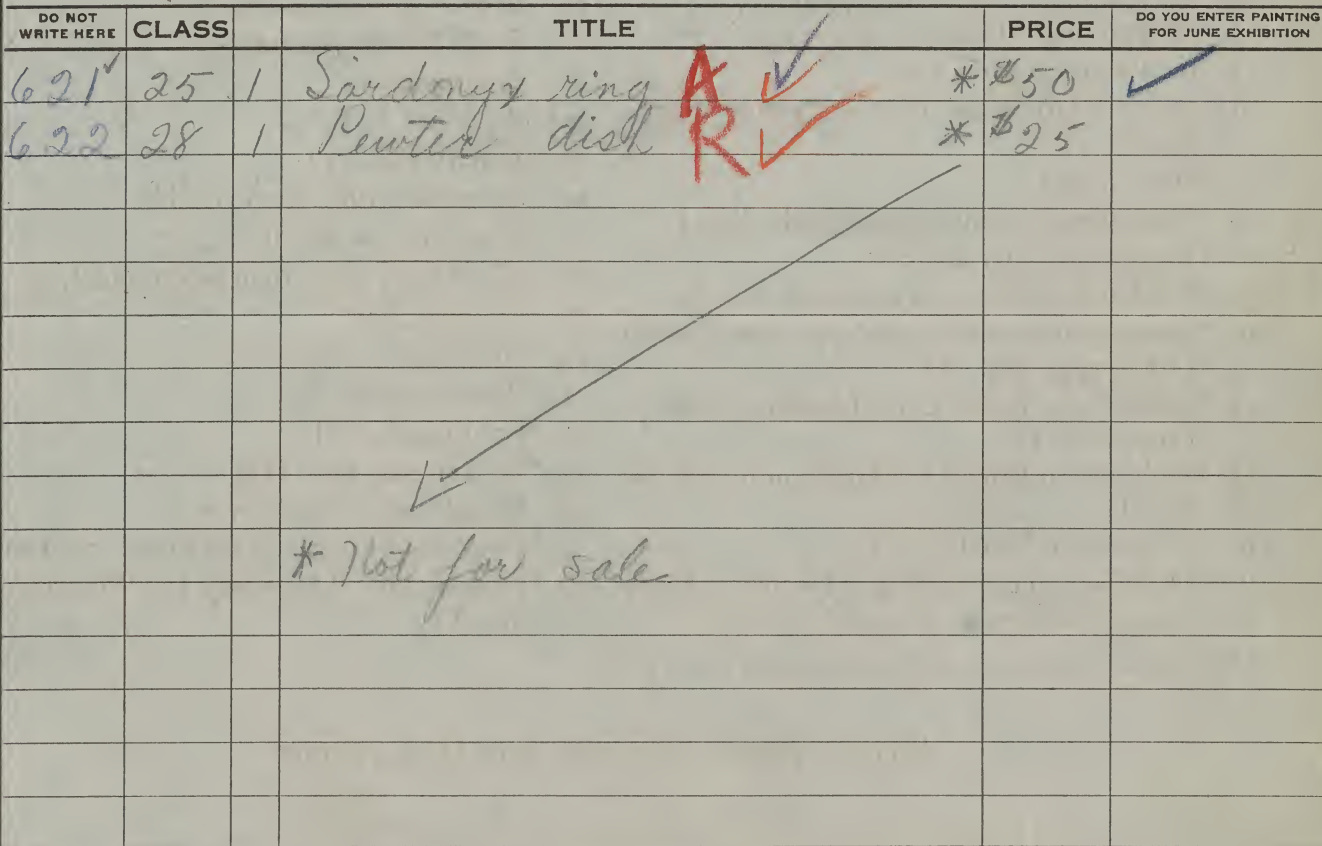 DO NOT WRITE HERE CLASS TITLE PRICE DO YOU ENTER PAINTING FOR JUNE EXHIBITION
621 25 1 Sardonyx ring A * $50
622 28 1 Pewter dish R * $25
* Not for sale